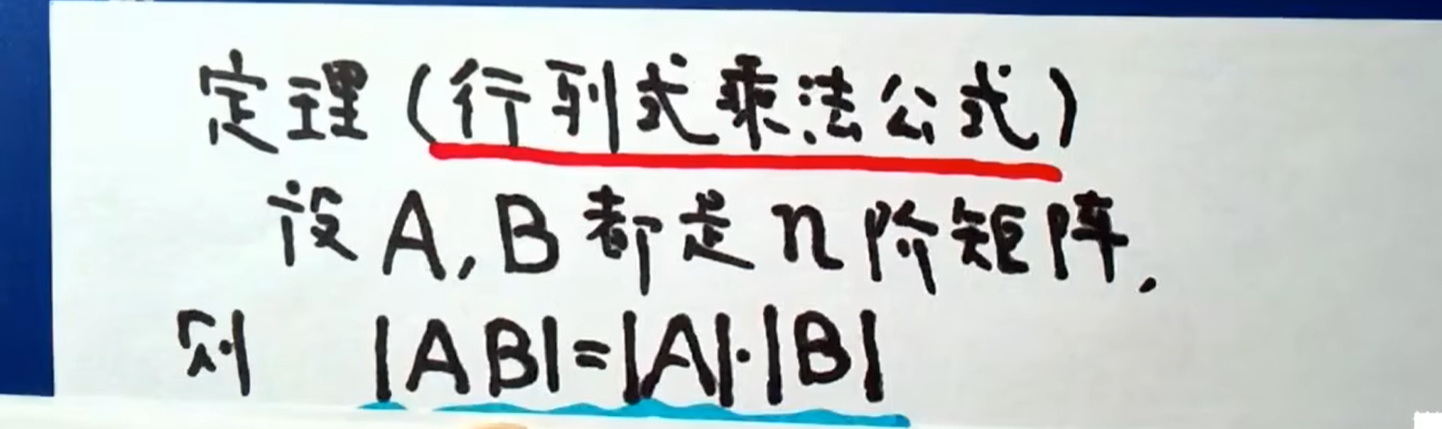 定理(行列式乘法公式)
设A,B都是n阶矩阵,
则 |AB|=|A|·|B|